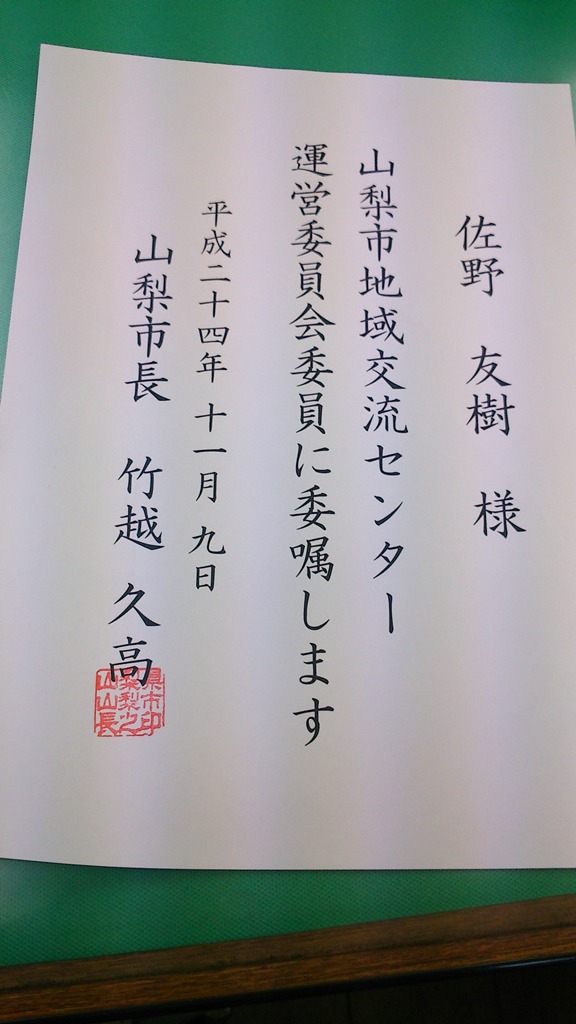 佐野 友樹 様
山梨市地域交流センター
運営委員会委員に委嘱します
平成二十四年 十一月 九日
山梨市長 竹越 久高
県市印
梨梨之
山山長